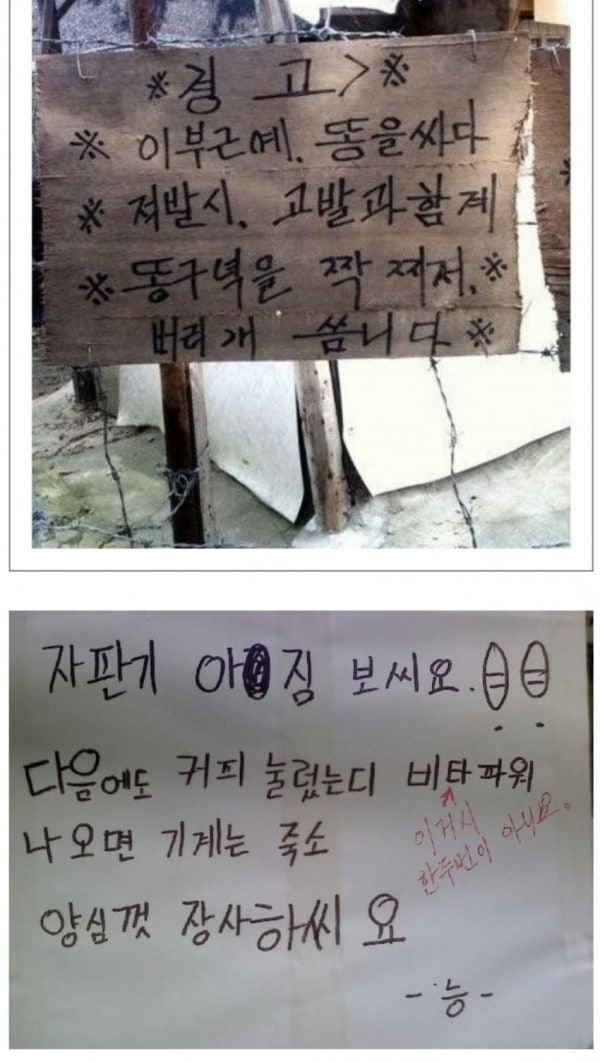 ※경 고>※
※ 이부근에. 똥을싸다
※ 저발시. 고발과함께
※ 똥구녁을 짝 찌저.※
버리개 씀니다 ※
자판기 아짐 보씨요.
다음에도 커피 눌렀는디 비타파워
나오면 기계는 죽소
이거시
한두번이 아니요.
양심껏 장사하씨요
- 능 -